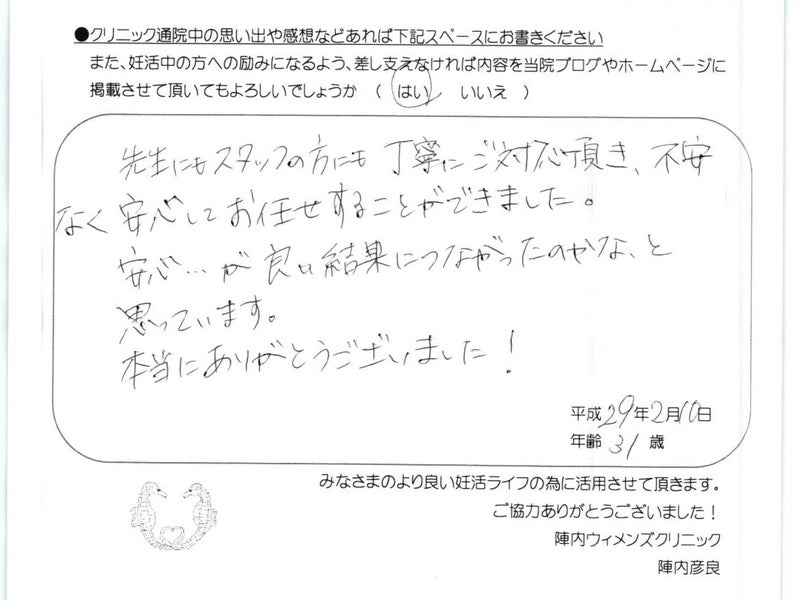 ●クリニック通院中の思い出や感想などあれば下記スペースにお書きください
また、妊活中の方への励みになるよう、差し支えなければ内容を当院ブログやホームページに
掲載させて頂いてもよろしいでしょうか （ はい いいえ ）
先生にもスタッフの方にも丁寧にご対応頂き、不安
なく安心してお任せすることができました。
安心…が良い結果につながったのかな、と
思っています。
本当にありがとうございました！
平成29年2月10日
年齢 31 歳
みなさまのより良い妊活ライフの為に活用させて頂きます。
ご協力ありがとうございました！
陣内ウィメンズクリニック
陣内彦良